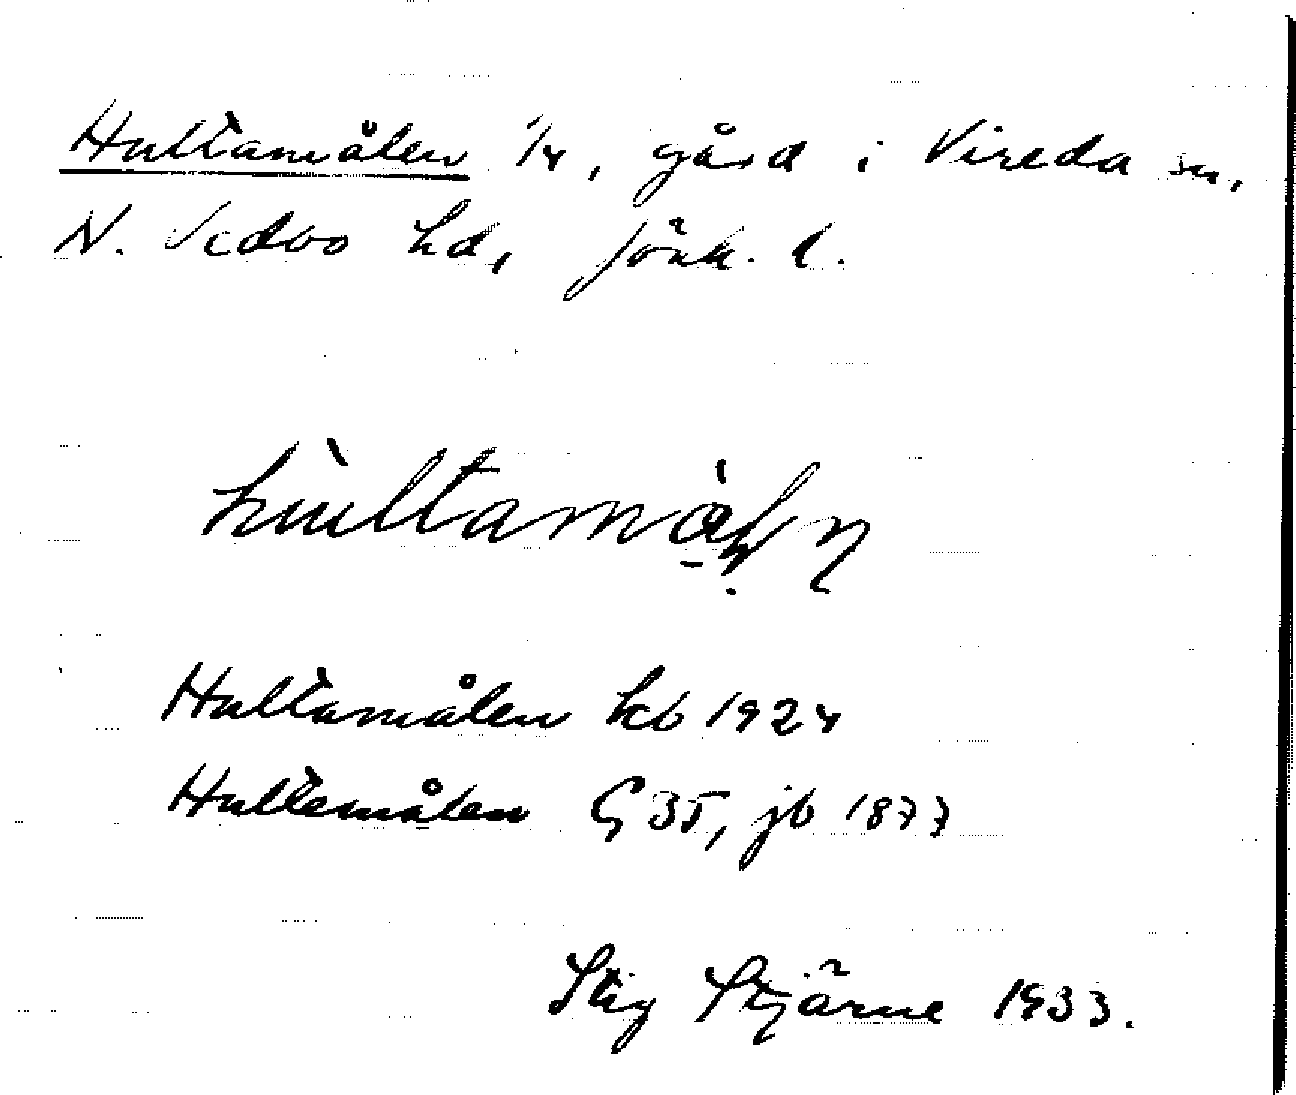 Hultamålen 1/4, gård i Vireda sn,
N. Vedbo hd, Jönk. l.
Hultamålen kb 1924
Hultemålen G 35, jb 1877
Stig Stjärne 1933.